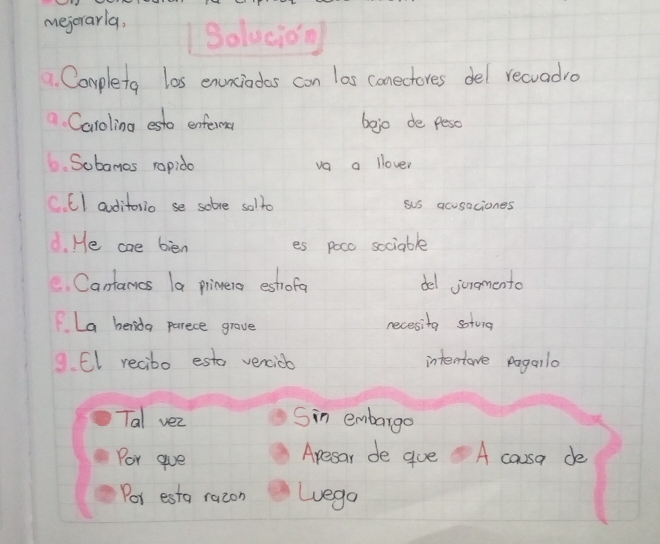 mejorarla,
Solución
a. Completa los enunciados con los conectores del recuadro
a. Carolina esta enferma bajo de peso
b. Subamos rapido va a llover
C. El auditorio se sobre salto sus acusaciones
d. Me cae bien es poco sociable
e. Cantamos la primera estrofa del juramento
F. La herida parece grave necesita sotura
g. El recibo esta vencido intentare pagarlo
Tal vez Sin embargo
Por que Apesar de que A causa de
Por esta razon Luego